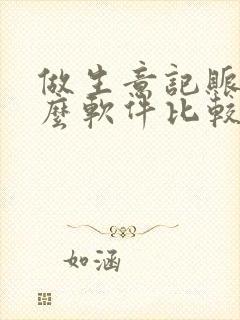 做生意記賬
麼軟件比較
如涵